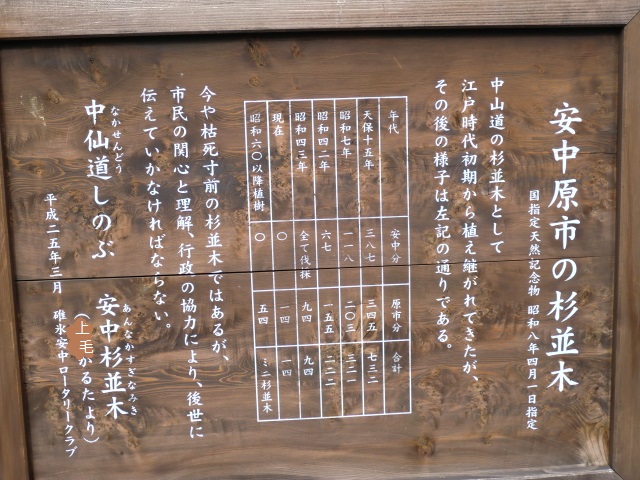 安中原市の杉並木
国指定天然記念物 昭和八年四月一日指定
中山道の杉並木として
江戸時代初期から植え継がれてきたが、
その後の様子は左記の通りである。
年代 安中分 原市分 合計
天保十五年 三八七 三四五 七三二
昭和七年 一一八 二〇三 三二一
昭和四二年 六七 一五五 二二二
昭和四三年 全て伐採 九四 九四
現在 〇 一四 一四
昭和六〇以降植樹 〇 五四 ミニ杉並木
今や枯死寸前の杉並木ではあるが、
市民の関心と理解、行政の協力により、後世に
伝えていかなければならない。
中仙道しのぶ 安中杉並木
なかせんどう あんなかすぎなみき
(上毛かるたより)
平成二五年三月 碓氷安中ロータリークラブ